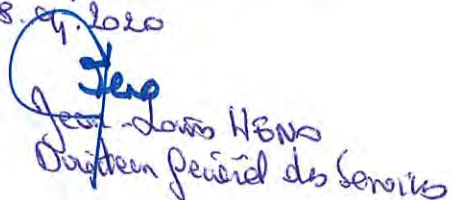 8.09.2020
Jean-Louis HENO
Directeur général des Services